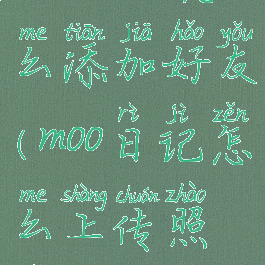 me tiān jiā hǎo yǒu
么添加好友
rì jì zěn
(moo日记怎
me shàng chuán zhào
么上传照